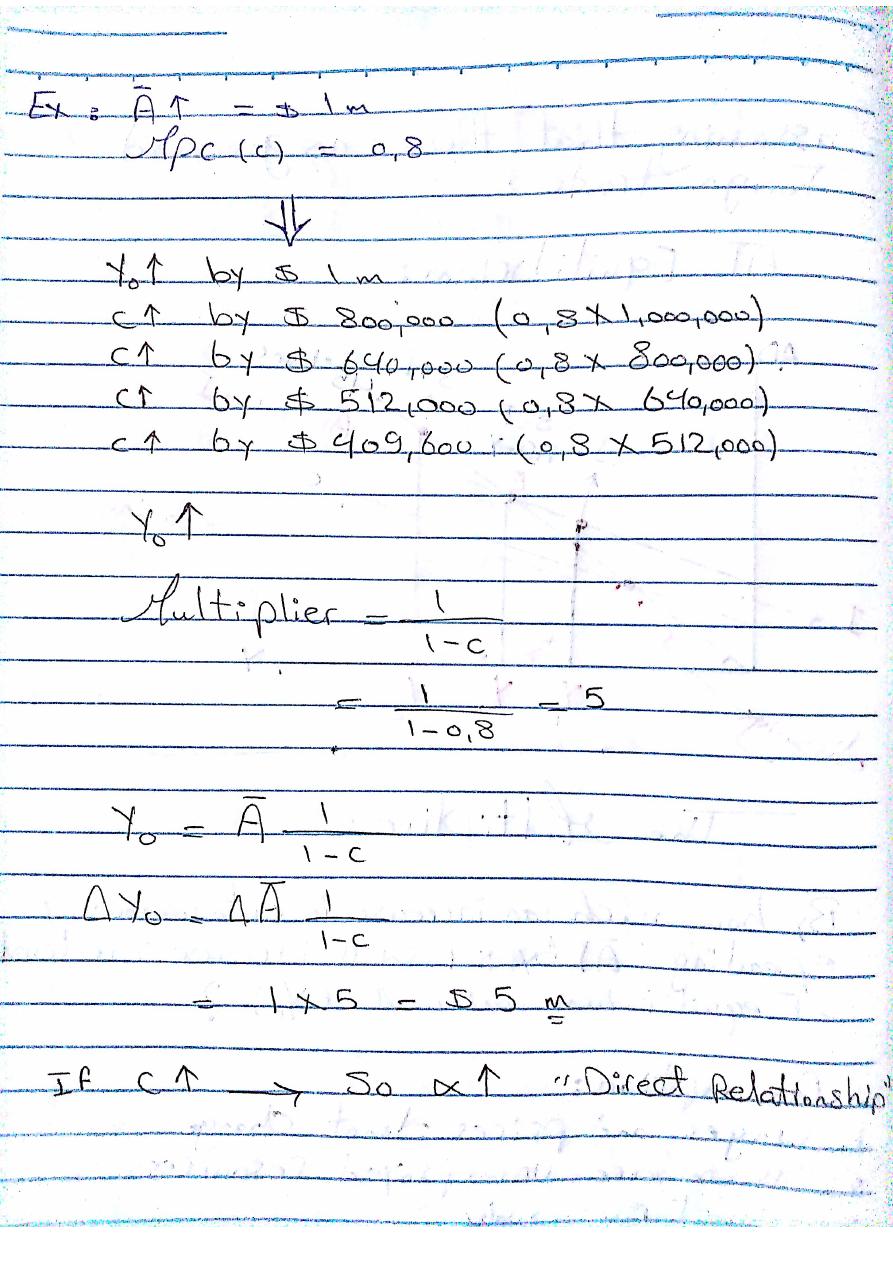 Ex : Ā ↑ = $ 1 m
Mpc (c) = 0,8
⇓
Y₀↑ by $ 1 m
c↑ by $ 800,000 (0,8 X 1,000,000)
c↑ by $ 640,000 (0,8 X 800,000)
c↑ by $ 512,000 (0,8 X 640,000)
c↑ by $ 409,600 (0,8 X 512,000)
Y₀ ↑
Multiplier = 1 / 1-c
= 1 / 1-0,8 = 5
Y₀ = Ā 1 / 1-c
Δ Y₀ = Δ Ā 1 / 1-c
= 1 X 5 = $ 5 m
If C ↑ → So α ↑ "Direct Relationship"